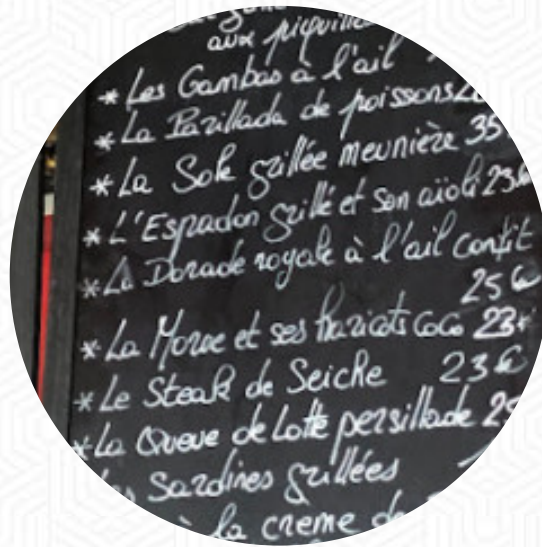 aux piquillo
* Les Gambas à l'ail
* La Parillada de poissons
* La Sole grillée meunière 35
* L'Espadon grillé et son aïoli 23€
* La Dorade royale à l'ail confit
25€
* La Morue et ses haricots coco 23€
* Le Steak de Seiche 23€
* La Queue de Lotte persillade 2
Sardines grillées
à la creme de